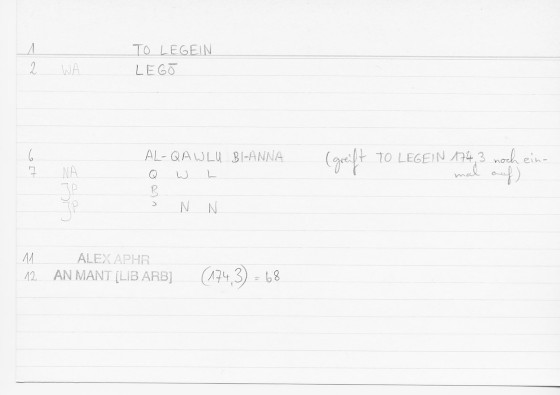 1 TO LEGEIN
2 WA LEGŌ
6 AL-QAWLU BI-ANNA (greift TO LEGEIN 174,3 noch ein-
7 NA Q W L mal auf)
JP B
JP ʾ N N
11 ALEX APHR
12. AN MANT [LIB ARB] (174,3) = 68